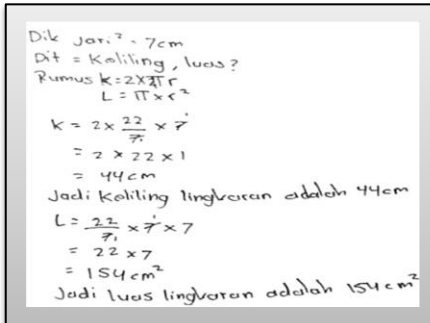 Dik Jari² = 7cm
Dit = Keliling, luas?
Rumus k = 2×π r
L = π × r²
K = 2 × 22/7 × 7
= 2 × 22 × 1
= 44 cm
Jadi Keliling lingkaran adalah 44cm
L = 22/7 × 7 × 7
= 22 × 7
= 154 cm²
Jadi luas lingkaran adalah 154 cm²